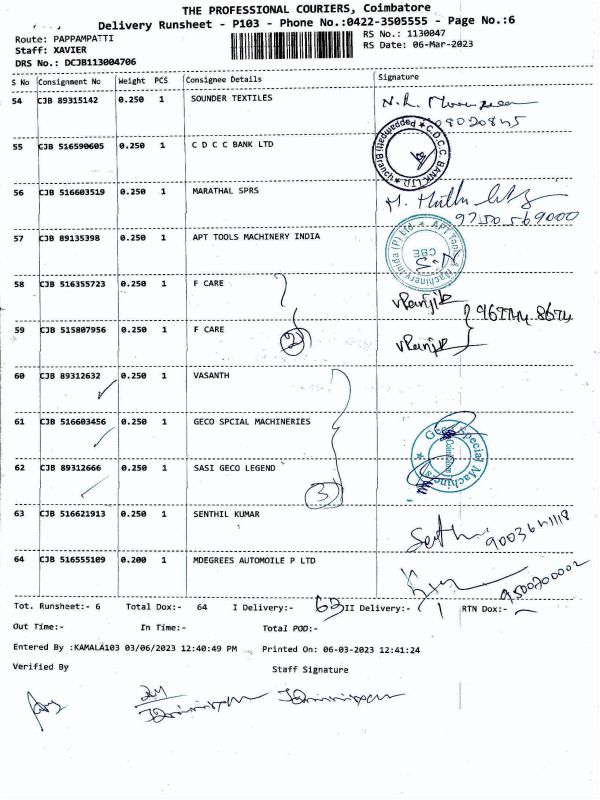 THE PROFESSIONAL COURIERS, Coimbatore
Delivery Runsheet - P103 - Phone No.:0422-3505555 - Page No.:6
Route: PAPPAMPATTI
RS No.: 1130047
Staff: XAVIER
RS Date: 06-Mar-2023
DRS No.: DCJB113004706
S No Consignment No Weight PCS Consignee Details Signature
54 CJB 89315142 0.250 1 SOUNDER TEXTILES
55 CJB 516590605 0.250 1 C D C C BANK LTD
C.D.C.C. BANK LTD. Pappampatti Branch
56 CJB 516603519 0.250 1 MARATHAL SPRS
9750569000
57 CJB 89135398 0.250 1 APT TOOLS MACHINERY INDIA
APT Tools & Machinery India (P) Ltd CBE
58 CJB 516355723 0.250 1 F CARE
59 CJB 515807956 0.250 1 F CARE
2
60 CJB 89312632 0.250 1 VASANTH
61 CJB 516603456 0.250 1 GECO SPCIAL MACHINERIES
Geco Special Machines
62 CJB 89312666 0.250 1 SASI GECO LEGEND
3
63 CJB 516621913 0.250 1 SENTHIL KUMAR
64 CJB 516555109 0.200 1 MDEGREES AUTOMOILE P LTD
9500200002
Tot. Runsheet:- 6 Total Dox:- 64 I Delivery:- 63 II Delivery:- 1 RTN Dox:-
Out Time:- In Time:- Total POD:-
Entered By :KAMALA103 03/06/2023 12:40:49 PM Printed On: 06-03-2023 12:41:24
Verified By Staff Signature